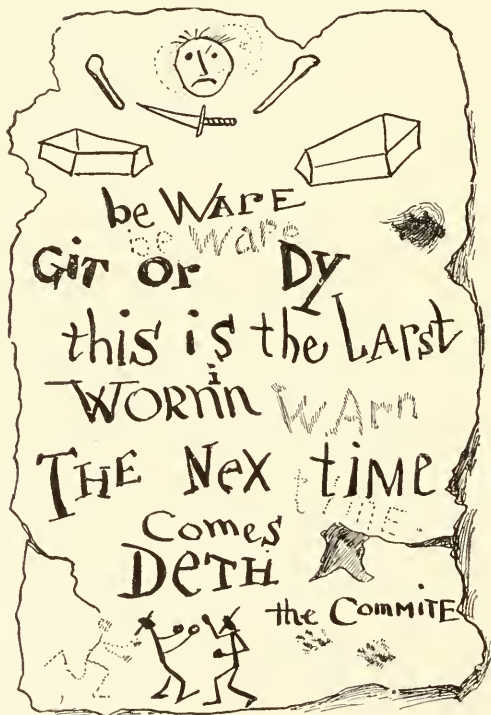 be WArE
be Ware
GiT or Dy
this is the LArst
WORnin WArn
THE Nex tiME
tIME
Comes
DeTH
the CommiTE